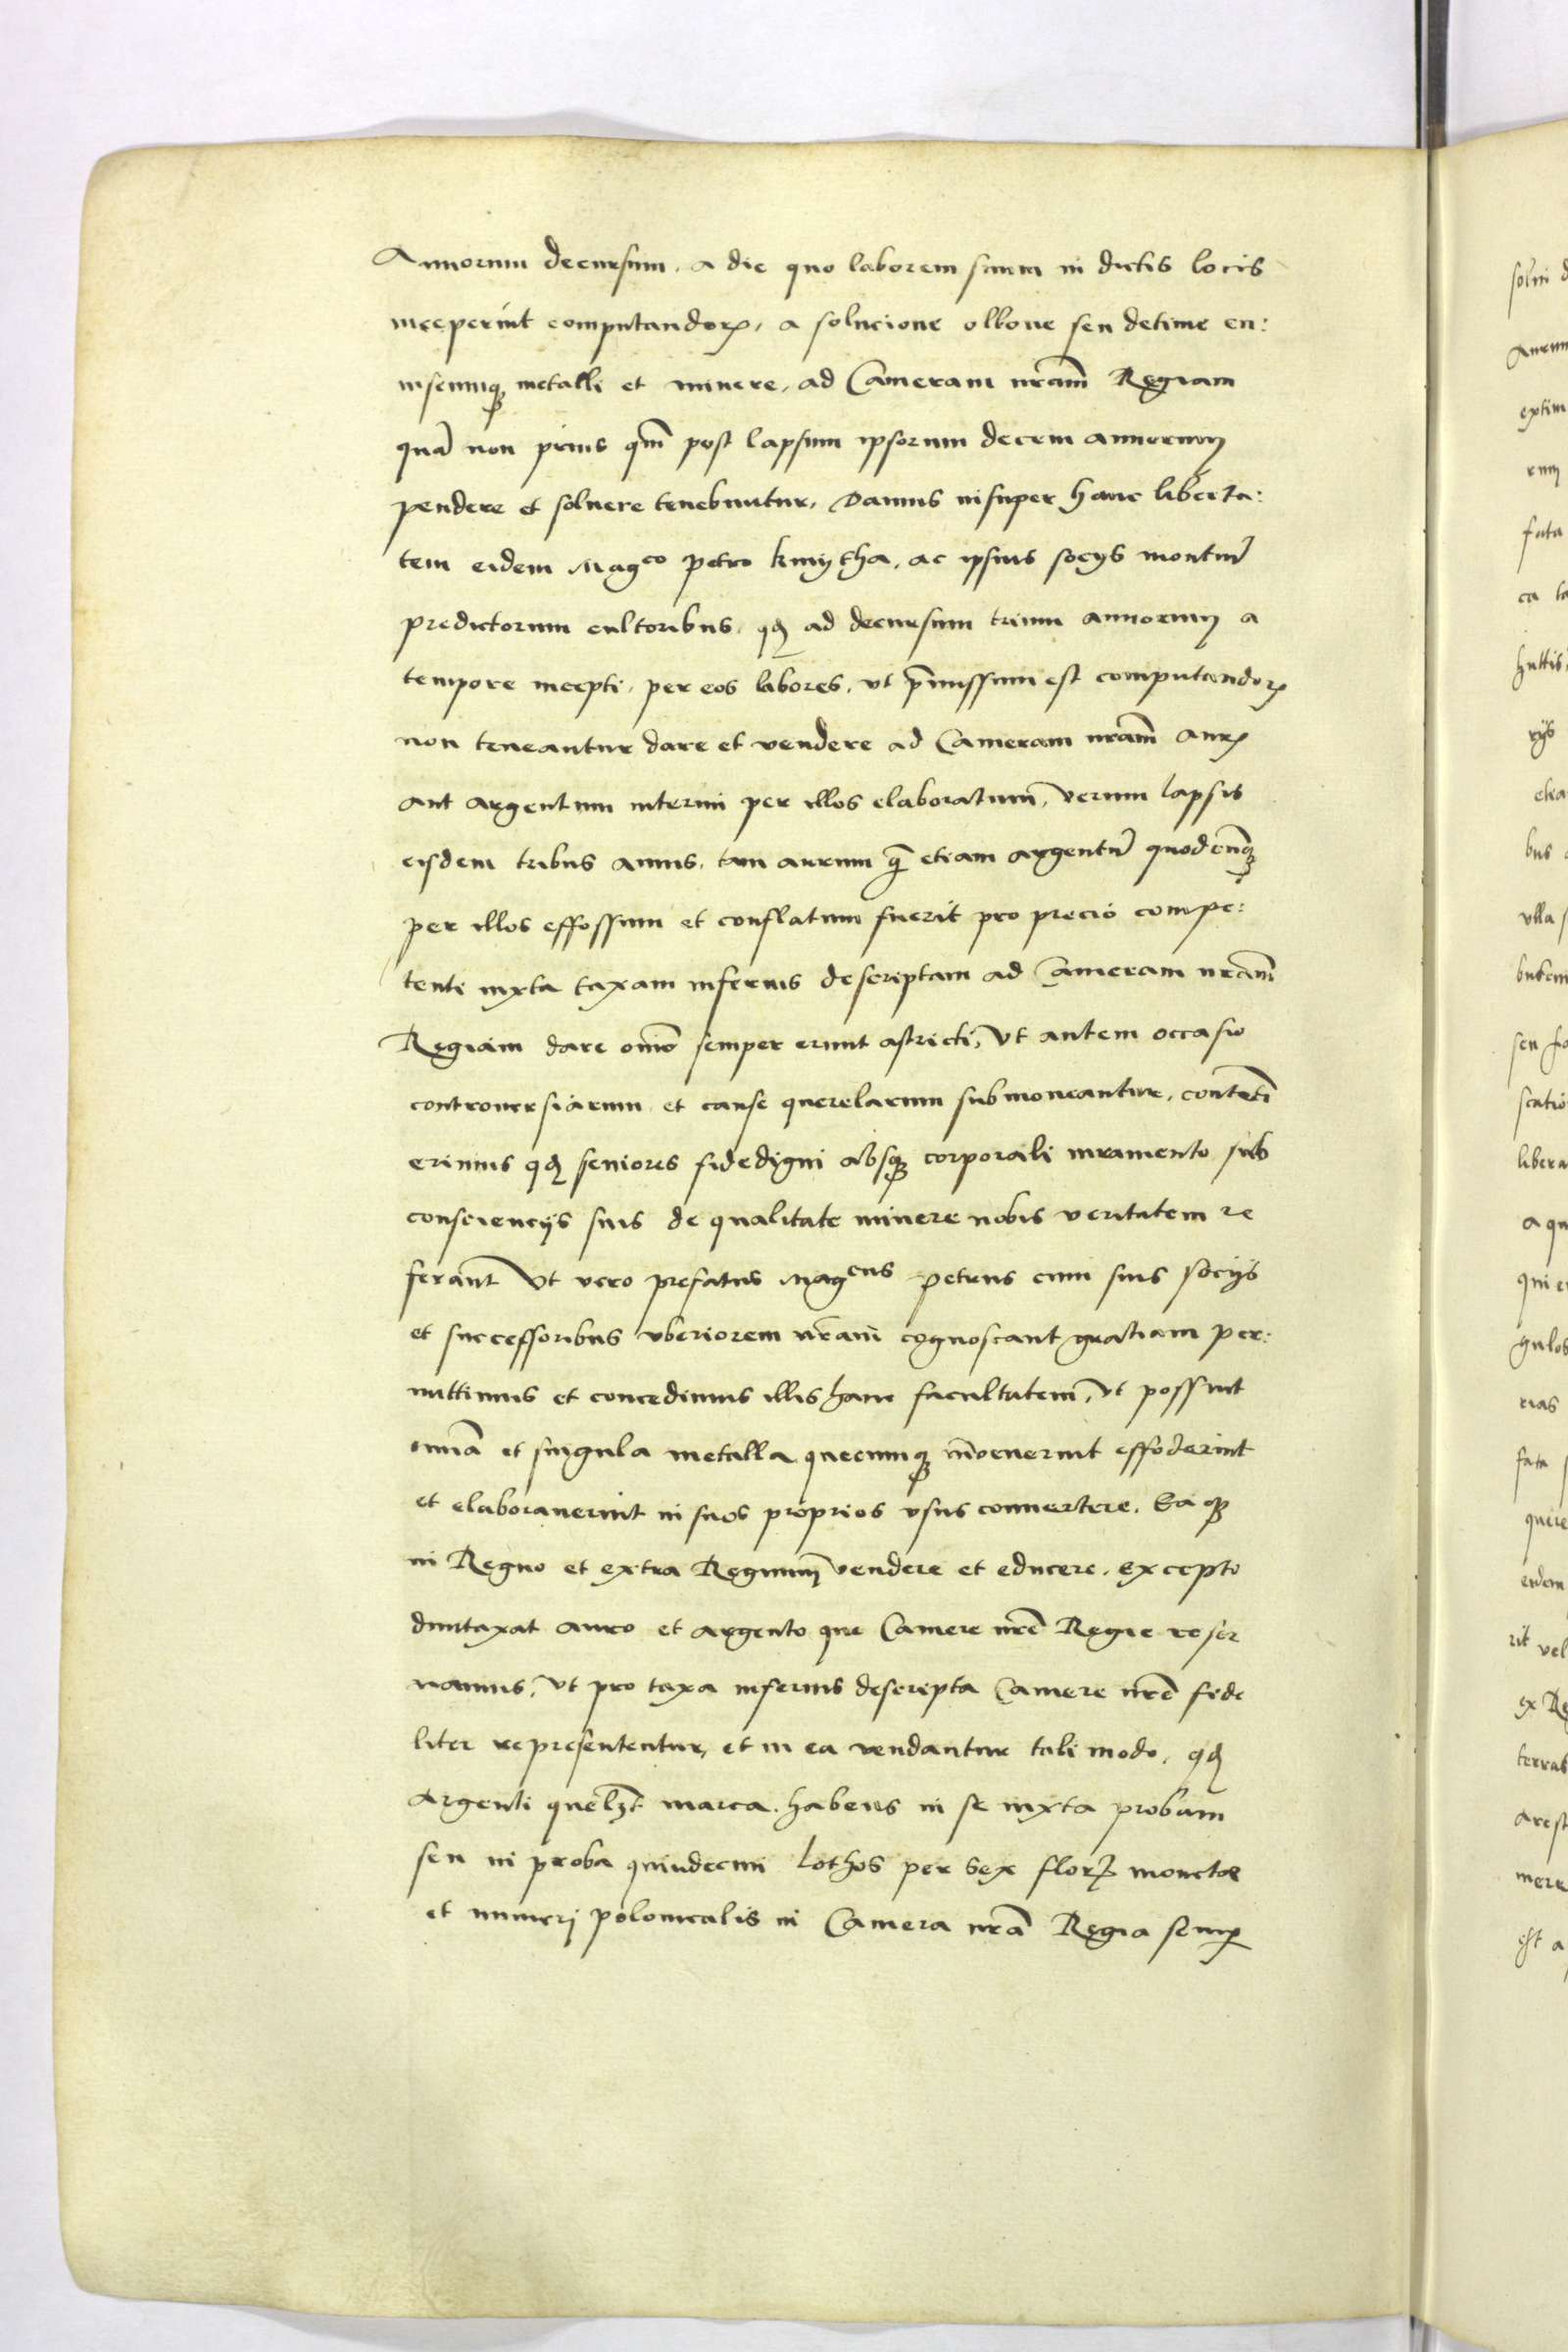 Annorum decursum, a die quo laborem suum in dictis locis
inceperint computandoꝝ, a solucione olbone seu decime cu:
iuscumqꝫ metalli et minere, ad Cameram nr̄am Regiam
quā non prius qm̄ post lapsum ipsorum decem annorum
pendere et soluere tenebuntur, Damus insuper hanc liberta:
tem eidem Mag^co petro kmytha, ac ipsius socijs montiū
predictorum cultoribus, qđ ad decursum trium annorum a
tempore incepti, per eos labores, vt p̄missum est computandoꝝ
non teneantur dare et vendere ad Cameram nr̄am Auꝝ
aut argentum interim per illos elaboratum, verum lapsis
eisdem tribus annis, tam aurum q̄ etiam argentū quodcūqꝫ
per illos effossum et conflatum fuerit pro precio compe:
tenti iuxta taxam inferius descriptam ad Cameram nr̄am
Regiam dare om̄o semper erunt astricti, Vt autem occasio
controuersiarum et cause querelarum submoueantur, contēti
erimus qđ seniores fidedigni absqꝫ corporali iuramento sub
consciencijs suis de qualitate minere nobis veritatem re
ferant Vt vero prefatus Mag^cus petrus cum suis socijs
et successoribus vberiorem nr̄am cognoscant gratiam per:
mittimus et concedimus illis hanc facultatem, vt possint
omīa et singula metalla quecumqꝫ īnuenerint effoderint
et elaborauerint in suos proprios vsus conuertere. Eaqꝫ
in Regno et extra Regnum vendere et educere. excepto
duntaxat auro et argento que Camere nrē Regie reser
uamus, vt pro taxa inferius descripta Camere nrē fide
liter represententur, et in ea vendantur tali modo, qđ
Argenti quelꝫt marca habens in se iuxta probam
seu in proba quindecim lothos per sex floꝝ monete
et numeri polonicalis in Camera nrā Regia semꝑ